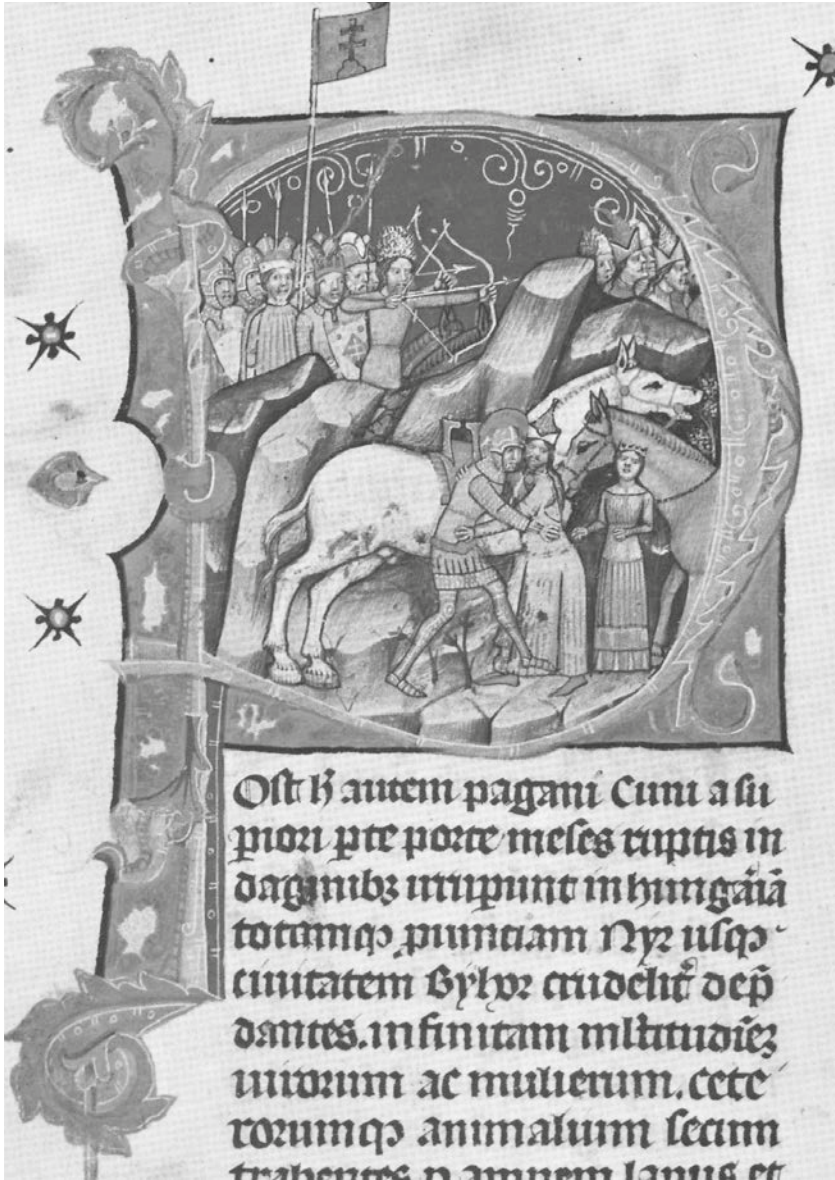 Ost h̄ autem pagani Cuni a su
piori pte porte meses ruptis in
daginibꝫ irrupunt in hungāiā
totamqꝫ puinciam Nyr usqꝫ
ciuitatem Byhor crudelit̄ dep̄
dantes. infinitam mltitudiēꝫ
uirorum ac mulierum. cete
rorumqꝫ animalium secum
trahentes p amnem lapus et